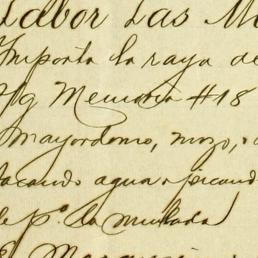 Labor Las M
Importa la raya de
Memoria #18
Mayordomo, mozo,
sacando agua y picand
de p.ª la mulada